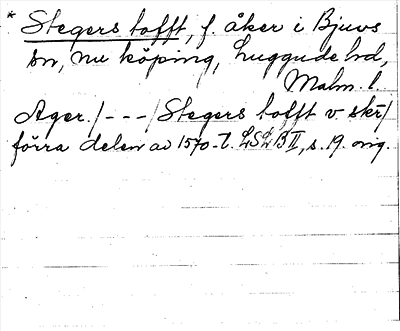 * Stegers tofft, f. åker i Bjuvs
sn, nu köping, Luggude hd,
Malm. l.
Ager. /---/ Stegers tofft v skr/
förra delen av 1570-t. LSLB II, s. 19. orig.